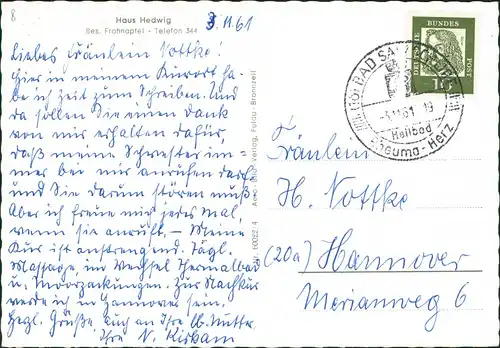 8
Haus Hedwig
Bes. Frohnapfel - Telefon 344
3.11.61
Liebes Fräulein Nottke!
Hier in meinem Kurort ha-
be ich Zeit zum Schreiben. Und
da sollen Sie einen Dank
von mir erhalten dafür,
daß meine Schwester im-
mer bei mir anrufen darf
und Sie darum stören muß.
Aber ich freue mich jedes Mal,
wenn sie anruft. — Meine
Kur ist anstrengend. Tägl.
Massage, im Wechsel Thermalbad
u. Moorpackungen. Zur Nachkur
werde ich in Hannover sein.
Herzl. Grüße, auch an Ihre lb. Mutter,
Ihre
Fulda - Bronnzell
DEUTSCHE BUNDESPOST
10
BAD
61 - 19
Heilbad
Rheuma - Herz
Fräulein
H. Nottke
(20a) Hannover
Merianweg 6